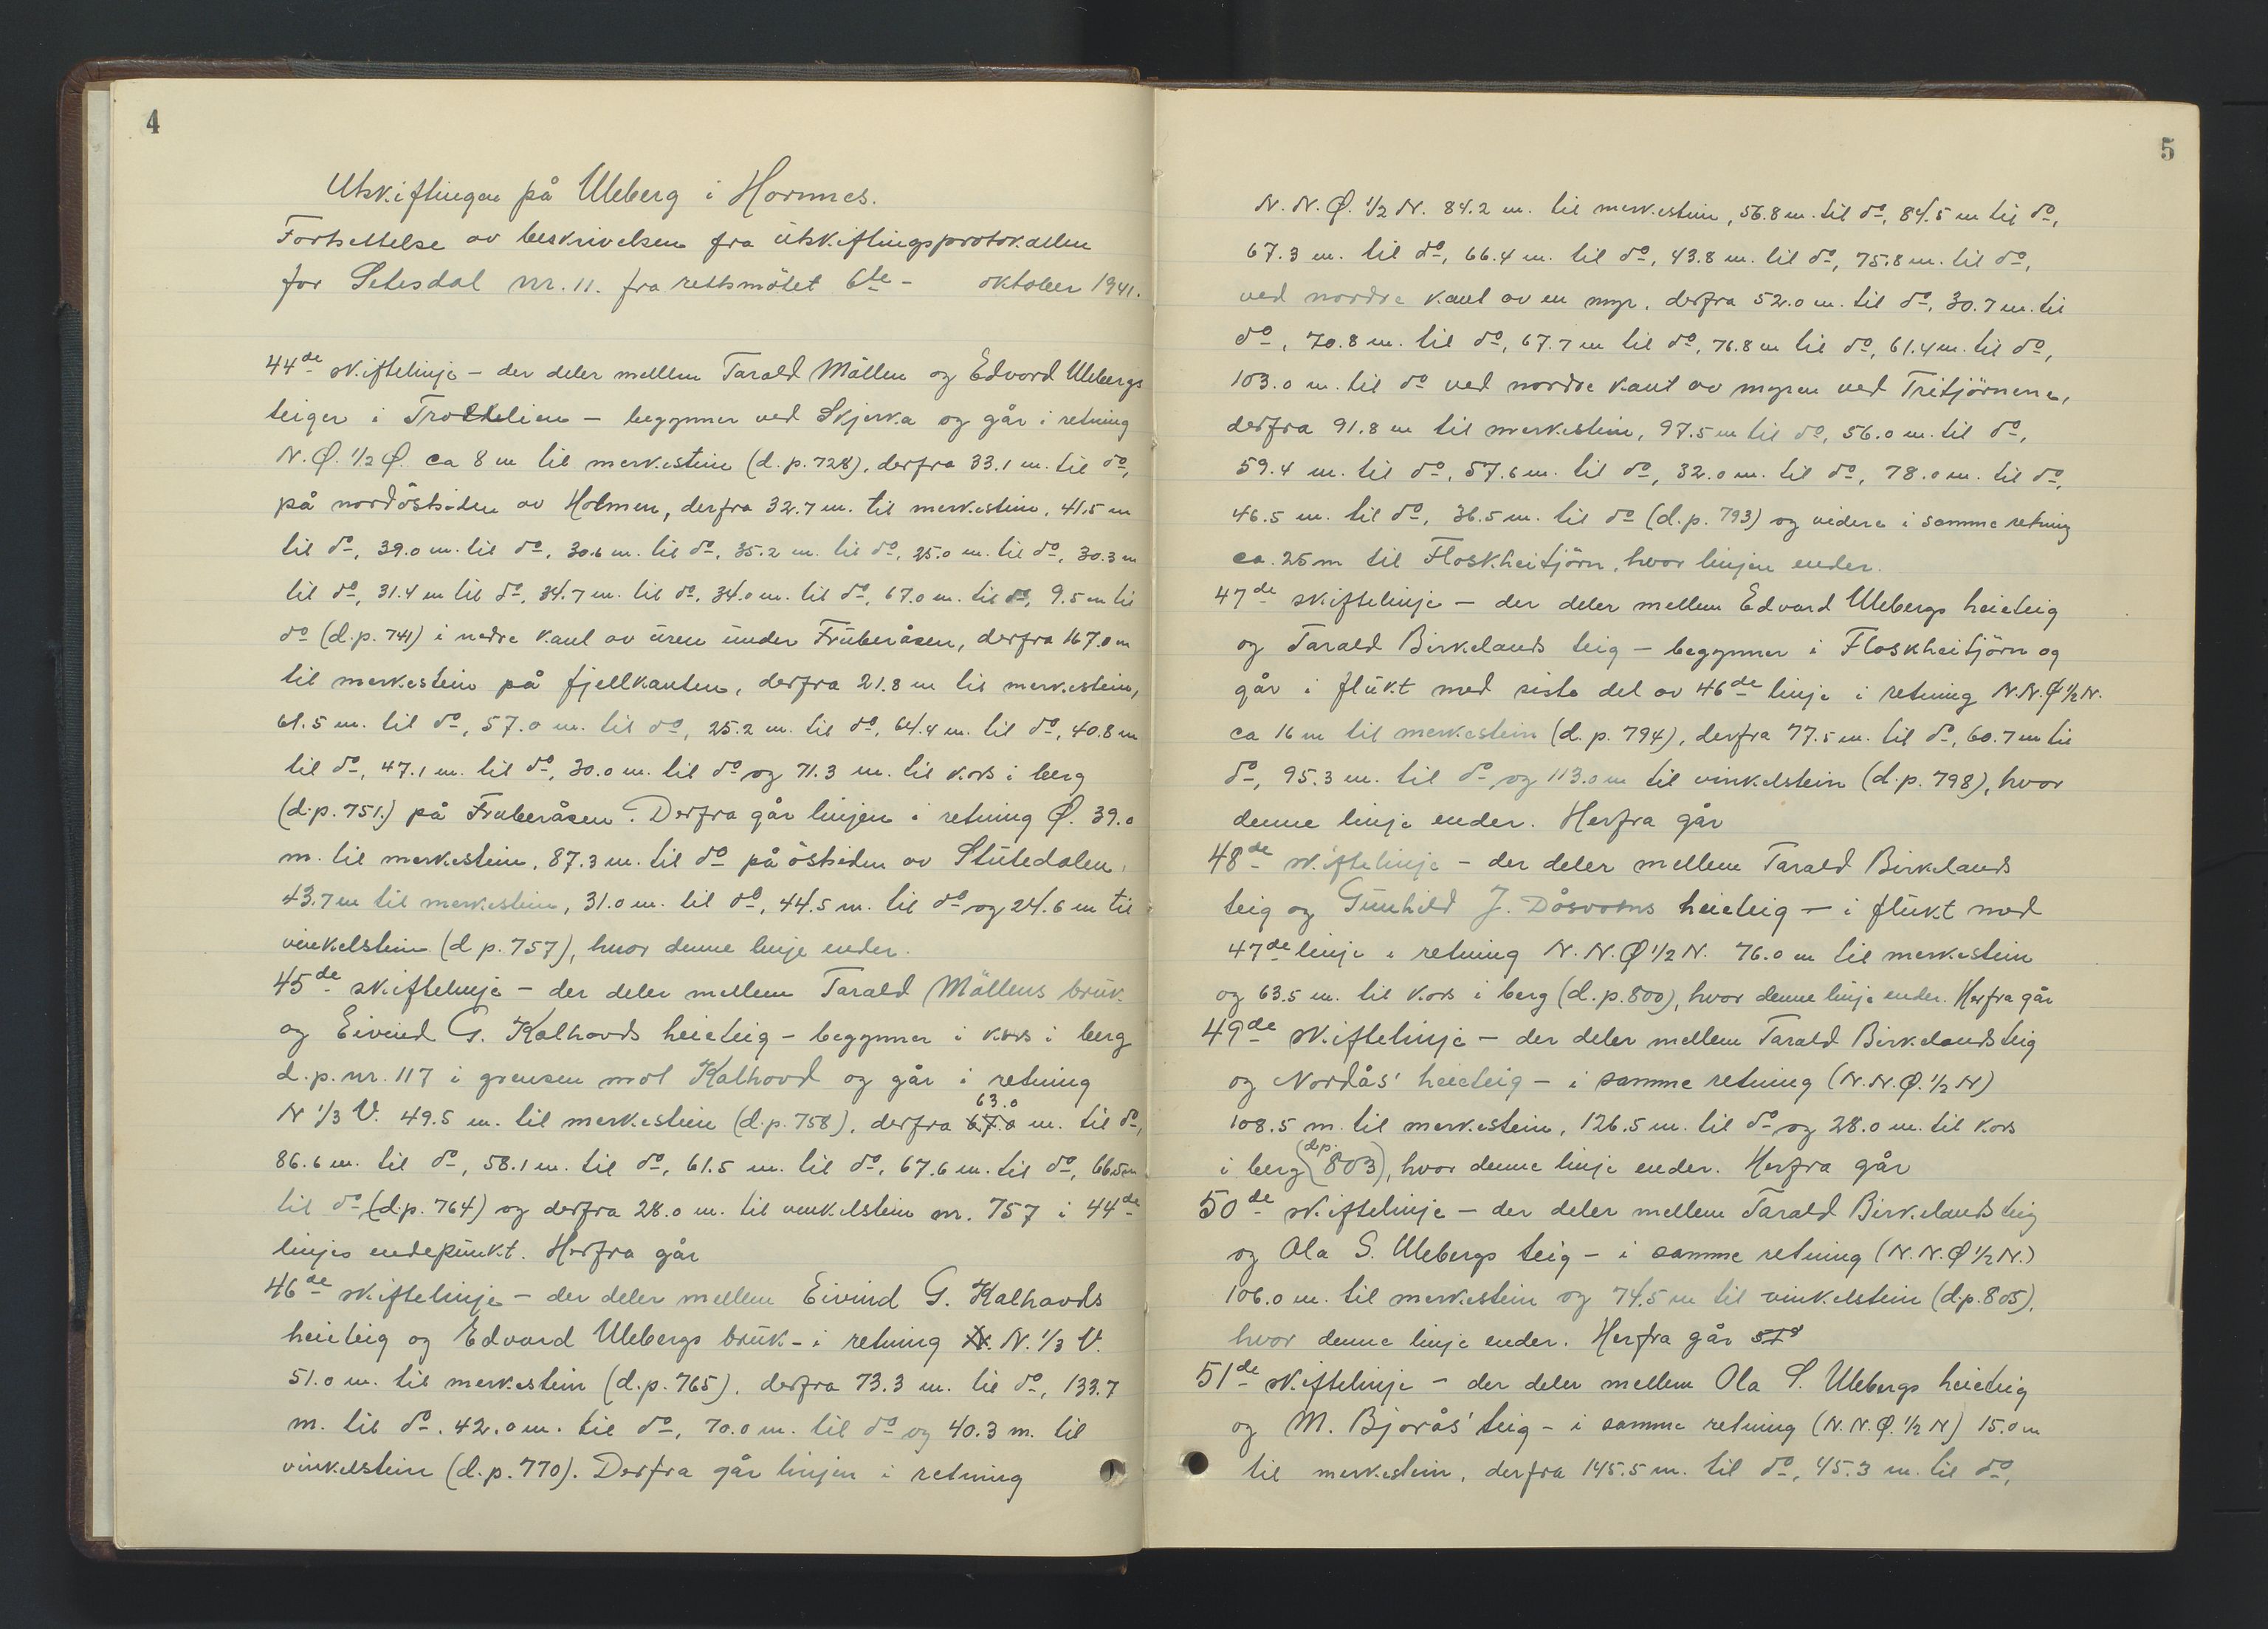 4
Utskiftingen på Uleberg i Hornnes.
Fortsettelse av beskrivelsen fra utskiftingsprotokollen
for Setesdal nr. 11. fra rettsmötet 6te - oktober 1941.
44de skiftelinje - der deler mellem Tarald Möllen og Edvard Ulebergs
teiger i Trollelien - begynner ved Skjerka og går i retning
N.Ø. 1/2 Ø. ca 8 m til merkestein (d.p. 728), derfra 33.1 m. til do,
på nordöstsiden av Holmen, derfra 32.7 m. til merkestein, 41.5 m
til do, 39.0 m. til do, 30.6 m. til do, 35.2 m. til do, 25.0 m. til do, 30.3 m
til do, 31.4 m til do, 34.7 m. til do, 34.0 m. til do, 67.0 m. til do, 9.5 m til
do (d.p. 741) i nedre kant av uren under Fruberåsen, derfra 167.0 m
til merkestein på fjellkanten, derfra 21.8 m til merkestein,
61.5 m. til do, 57.0 m. til do, 25.2 m. til do, 64.4 m. til do, 40.8 m
til do, 47.1 m. til do, 30.0 m. til do og 71.3 m. til kors i berg
(d.p. 751.) på Fruberåsen. Derfra går linjen i retning Ø. 39.0
m. til merkestein, 87.3 m. til do på östsiden av Stutedalen,
43.7 m til merkestein, 31.0 m. til do, 44.5 m. til do og 24.6 m til
vinkelstein (d p. 757), hvor denne linje ender.
45de skiftelinje - der deler mellem Tarald Möllens bruk
og Eivind G. Kalhovds heieteig - begynner i kors i berg
d.p. nr. 117 i grensen mot Kalhovd og går i retning
N 1/3 V. 49.5 m. til merkestein (d.p. 758), derfra 67.0 63.0 m. til do,
86.6 m. til do, 58.1 m. til do, 61.5 m. til do, 67.6 m. til do, 66.5 m
til do (d.p. 764) og derfra 28.0 m. til vinkelstein nr. 757 i 44de
linjes endepunkt. Herfra går
46de skiftelinje - der deler mellem Eivind G. Kalhovds
heieteig og Edvard Ulebergs bruk - i retning N. N. 1/3 V.
51.0 m. til merkestein (d.p. 765), derfra 73.3 m. til do, 133.7
m. til do, 42.0 m. til do, 70.0 m. til do og 40.3 m. til
vinkelstein (d.p. 770). Derfra går linjen i retning
5
N.N.Ø. 1/2 N. 84.2 m. til merkestein, 56.8 m. til do, 84.5 m til do,
67.3 m. til do, 66.4 m. til do, 43.8 m. til do, 75.8 m. til do,
ved nordre kant av en myr, derfra 52.0 m. til do, 30.7 m. til
do, 70.8 m. til do, 67.7 m til do, 76.8 m til do, 61.4 m. til do,
103.0 m. til do ved nordre kant av myren ved Tritjörnene,
derfra 91.8 m til merkestein, 97.5 m til do, 56.0 m. til do,
59.4 m. til do, 57.6 m. til do, 32.0 m. til do, 78.0 m. til do,
46.5 m. til do, 36.5 m. til do (d.p. 793) og videre i samme retning
ca. 25 m til Floskheitjörn, hvor linjen ender.
47de skiftelinje - der deler mellem Edvard Ulebergs heieteig
og Tarald Birkelands teig - begynner i Floskheitjörn og
går i flukt med siste del av 46de linje i retning N.N.Ø 1/2 N.
ca 16 m til merkestein (d.p. 794), derfra 77.5 m. til do, 60.7 m til
do, 95.3 m. til do og 113.0 m til vinkelstein (d.p. 798), hvor
denne linje ender. Herfra går
48de skiftelinje - der deler mellem Tarald Birkelands
teig og Gunhild J. Dåsvatns heieteig - i flukt med
47de linje i retning N.N.Ø 1/2 N. 76.0 m til merkestein
og 63.5 m. til kors i berg (d.p. 800), hvor denne linje ender. Herfra går
49de skiftelinje - der deler mellem Tarald Birkelands teig
og Nordås' heieteig - i samme retning (N.N.Ø. 1/2 N)
108.5 m. til merkestein, 126.5 m. til do og 28.0 m. til kors
i berg (d.p. 803), hvor denne linje ender. Herfra går
50de skiftelinje - der deler mellem Tarald Birkelands teig
og Ola S. Ulebergs teig - i samme retning (N.N.Ø 1/2 N.)
106.0 m. til merkestein og 74.5 m til vinkelstein (d.p. 805),
hvor denne linje ender. Herfra går
51de skiftelinje - der deler mellem Ola S. Ulebergs heieteig
og M. Bjorås' teig - i samme retning (N.N.Ø. 1/2 N) 15.0 m
til merkestein, derfra 145.5 m. til do, 45.3 m. til do,